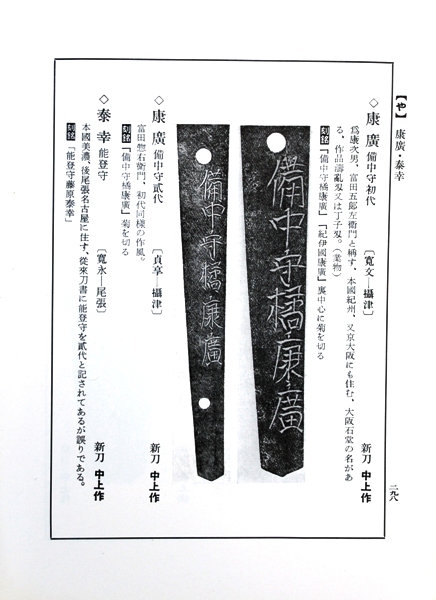 【や】 康廣・泰幸
二九八
◇康廣 備中守初代 〔寛文―攝津〕 新刀 中上作
爲康次男、富田五郎左衛門と稱す、本國紀州、又京大阪にも住む、大阪石堂の名があ
る、作品濤亂刄又は丁子刄。(業物)
刻銘「備中守橘康廣」「紀伊國康廣」裏中心に菊を切る
備中守橘康廣
備中守橘康廣
◇康廣 備中守貳代 〔貞享―攝津〕 新刀 中上作
富田惣右衛門、初代同樣の作風。
刻銘「備中守橘康廣」菊を切る
◇泰幸 能登守 〔寛永―尾張〕 新刀 中上作
本國美濃、後尾張名古屋に住す、從來刀書に能登守を貳代と記されてあるが誤りである。
刻銘「能登守藤原泰幸」